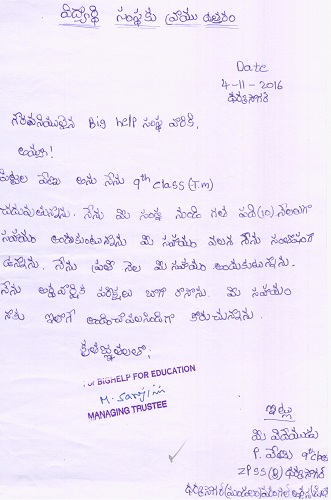 విద్యార్థి సంస్థకు వ్రాయు ఉత్తరం
Date
4-11-2016
ధర్మసాగర్
గౌరవనియులైన Big help సంస్థ వారికి,
అయ్యా!
వేణు అను నేను 9th class (T.m)
చదువుతున్నాను. నేను మి సంస్థ నుండి గత పది(10) నెలలుగా
సహయం అందుకుంటున్నాను మి సహయం వలన నేను సంతోషంగా
ఉన్నాను. నేను ప్రతి నెల మి సహయం అందుకుంటున్నాను.
నేను పరిక్షలు బాగా రాసాను. మి సహయం
నాకు ఇలాగే అందించవలసిందిగా కోరుచున్నాను.
కృతజ్ఞతలతో,
For BIGHELP FOR EDUCATION
MANAGING TRUSTEE
ఇట్లు
మి విదేయుడు
P. వేణు 9th class
ZPSS(B) ధర్మసాగర్